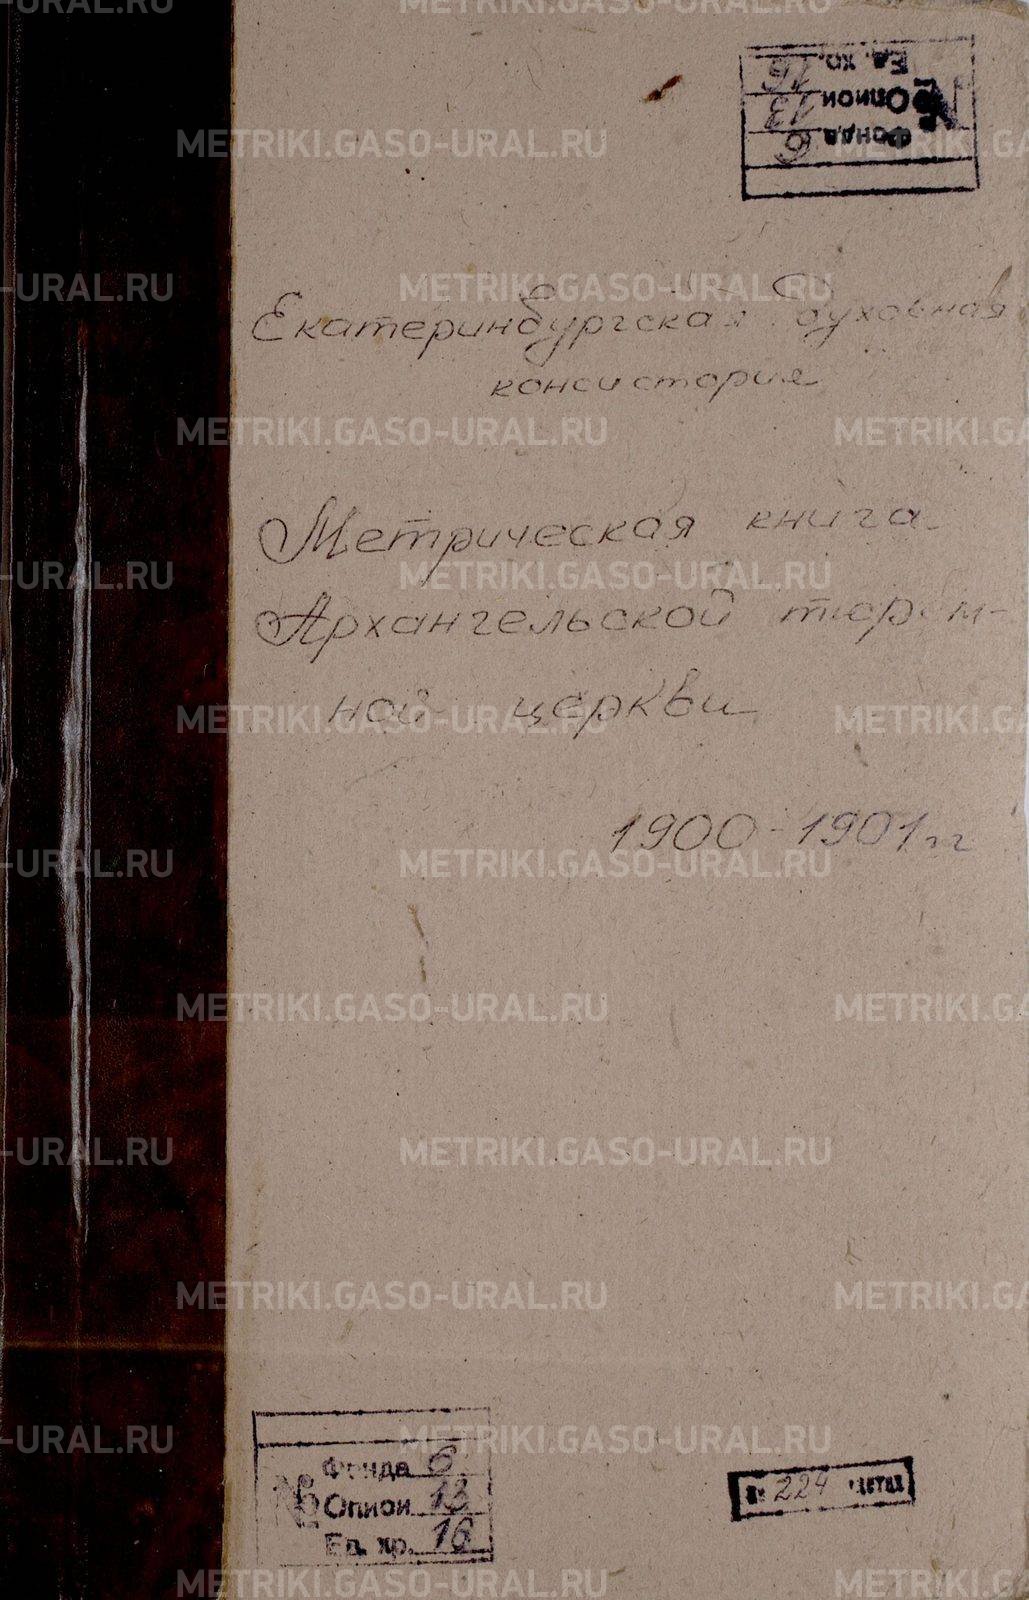 Ед. хр. 16
№ Описи 13
Фонда 6
Екатеринбургская духовная
консистория
Метрическая книга
Архангельской тюрем-
ной церкви
1900-1901 гг
Фонда 6
№ Описи 13
Ед. хр. 16
224 листах
METRIKI.GASO-URAL.RU